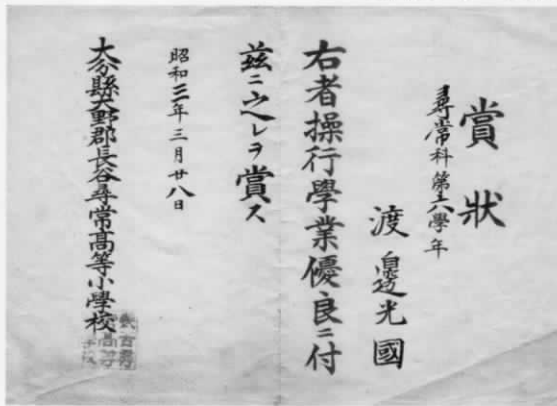 賞狀
尋常科第六學年
渡邊光國
右者操行學業優良ニ付
玆ニ之レヲ賞ス
昭和三年三月廿八日
大分縣大野郡長谷尋常高等小學校